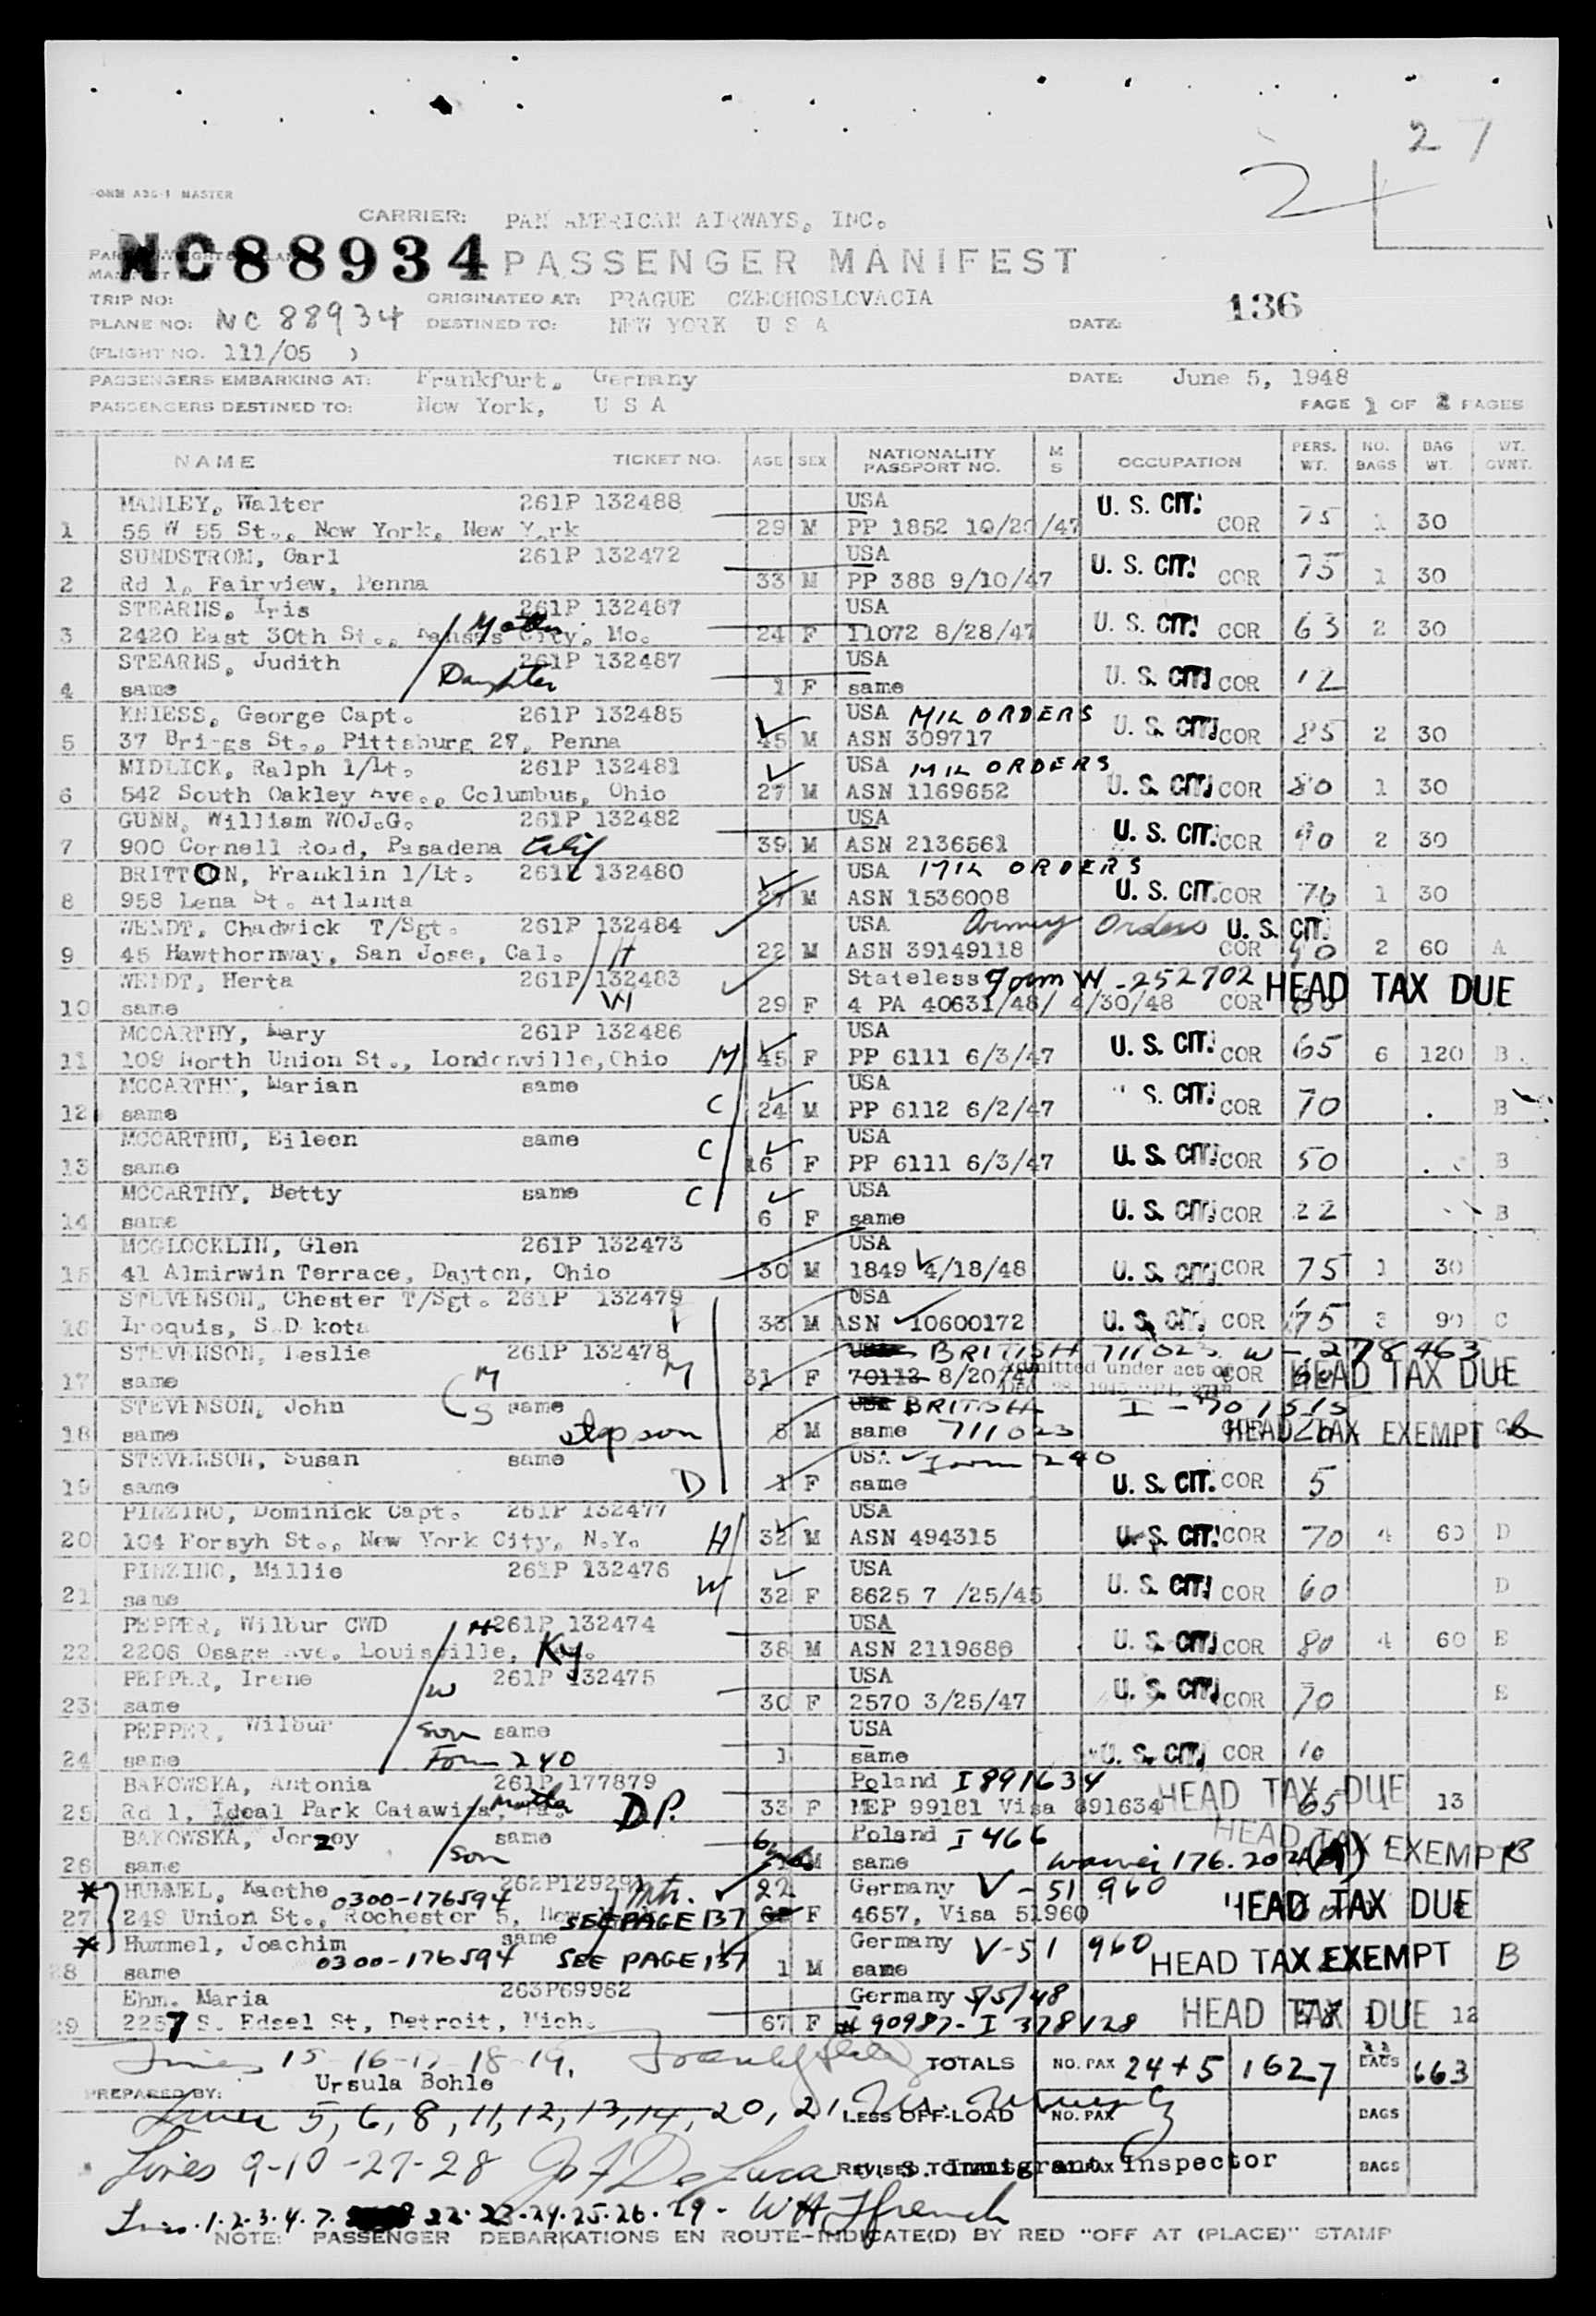 27
24
FORM A36-1 MASTER
CARRIER: PAN AMERICAN AIRWAYS, INC.
NC88934 PASSENGER MANIFEST
TRIP NO: ORIGINATED AT: PRAGUE CZECHOSLOVACIA 136
PLANE NO: NC 88934 DESTINED TO: NEW YORK U S A DATE:
(FLIGHT NO. 111/05 )
PASSENGERS EMBARKING AT: Frankfurt, Germany DATE: June 5, 1948
PASSENGERS DESTINED TO: New York, U S A PAGE 1 OF 2 PAGES
NAME TICKET NO. AGE SEX NATIONALITY PASSPORT NO. M S OCCUPATION PERS. WT. NO. BAGS BAG WT. WT. GVNT.
MANLEY, Walter 261P 132488 USA U. S. CIT.
1 55 W 55 St., New York, New York 29 M PP 1852 10/20/47 COR 75 1 30
SUNDSTROM, Carl 261P 132472 USA U. S. CIT.
2 Rd 1, Fairview, Penna 33 M PP 388 9/10/47 COR 75 1 30
STEARNS, Iris 261P 132487 USA U. S. CIT.
3 2420 East 30th St., Kansas City, Mo. Mother 24 F 11072 8/28/47 COR 63 2 30
STEARNS, Judith 261P 132487 USA U. S. CIT.
4 same Daughter 1 F same COR 12
KNIESS, George Capt. 261P 132485 USA MIL ORDERS U. S. CIT.
5 37 Briggs St., Pittsburg 27, Penna 45 M ASN 309717 COR 85 2 30
MIDLICK, Ralph 1/Lt. 261P 132481 USA MIL ORDERS
6 542 South Oakley Ave., Columbus, Ohio 27 M ASN 1169652 U. S. CIT. COR 80 1 30
GUNN, William WOJ.G. 261P 132482 USA U. S. CIT.
7 900 Cornell Road, Pasadena Calif 39 M ASN 2136561 COR 90 2 30
BRITTON, Franklin 1/Lt. 261P 132480 USA MIL ORDERS
8 958 Lena St. Atlanta 27 M ASN 1536008 U. S. CIT. COR 76 1 30
WENDT, Chadwick T/Sgt. 261P 132484 USA Army Orders U. S. CIT.
9 45 Hawthornway, San Jose, Cal. H 22 M ASN 39149118 COR 90 2 60 A
WENDT, Herta 261P 132483 Stateless Form W-252702 HEAD TAX DUE
10 same W 29 F 4 PA 40631/48/ 4/30/48 COR
MCCARTHY, Mary 261P 132486 USA U. S. CIT.
11 109 North Union St., Londonville, Ohio M 45 F PP 6111 6/3/47 COR 65 6 120 B
MCCARTHY, Marian same USA S. CIT.
12 same C 24 M PP 6112 6/2/47 COR 70 B
MCCARTHU, Eileen same USA
13 same C 16 F PP 6111 6/3/47 U. S. CIT. COR 50 B
MCCARTHY, Betty same USA
14 same C 6 F same U. S. CIT. COR 22 B
MCGLOCKLIN, Glen 261P 132473 USA
15 41 Almirwin Terrace, Dayton, Ohio 30 M 1849 4/18/48 U. S. CIT. COR 75 1 30
STEVENSON, Chester T/Sgt. 261P 132479 USA
16 Iroquis, S.D kota F 33 M ASN 10600172 U. S. CIT. COR 75 3 90 C
STEVENSON, Leslie 261P 132478 BRITISH 711023 W-278463
17 same M M 31 F 70112 8/20/47 Admitted under act of COR HEAD TAX DUE
STEVENSON, John S same USA BRITISH I-701515
18 same stepson 8 M same 711023 HEAD TAX EXEMPT
STEVENSON, Susan same USA Form 240
19 same D 1 F same U. S. CIT. COR 5
PINZINO, Dominick Capt. 261P 132477 USA
20 104 Forsyh St., New York City, N.Y. H 32 M ASN 494315 U. S. CIT. COR 70 4 60 D
PINZINO, Millie 261P 132476 USA
21 same W 32 F 8625 7 /25/45 U. S. CIT. COR 60 D
PEPPER, Wilbur CWD H 261P 132474 USA
22 2206 Osage Ave. Louisville, Ky. 38 M ASN 2119686 U. S. CIT. COR 80 4 60 E
PEPPER, Irene 261P 132475 USA
23 same W 30 F 2570 3/25/47 U. S. CIT. COR 70 E
PEPPER, Wilbur son same USA
24 same Form 240 1 same U. S. CIT. COR 10
BAKOWSKA, Antonia 261P 177879 Poland I 891634
25 Rd 1, Ideal Park Catawisa, Pa. Mother D.P. 33 F MEP 99181 Visa 891634 HEAD TAX DUE 65 13
BAKOWSKA, Jerzey same Poland I 466 HEAD TAX EXEMPT B
26 same son M same
* HUMMEL, Kaethe 0300-176594 Mth. 22 Germany V-51960
27 249 Union St., Rochester 5, New SEE PAGE 137 F 4657, Visa 51960 HEAD TAX DUE
* Hummel, Joachim same Germany V-51960
28 same 0300-176594 SEE PAGE 137 1 M same HEAD TAX EXEMPT B
Ehm. Maria 263P69962 Germany 5/5/48
29 2257 S. Edsel St, Detroit, Mich. 67 F 90987-I 378128 HEAD TAX DUE 12
Lines 15-16-17-18-19, TOTALS NO. PAX 24+5 1627 BAGS 663
PREPARED BY: Ursula Bohle
Lines 5, 6, 8, 11, 12, 13, 14, 20, 21 LESS OFF-LOAD NO. PAX BAGS
Lines 9-10-27-28 REVISED TOTALS Immigrant Inspector BAGS
Lines 1.2.3.4.7. 22.23.24.25.26.29 - WH Ffrench
NOTE: PASSENGER DEBARKATIONS EN ROUTE-INDICATE(D) BY RED "OFF AT (PLACE)" STAMP